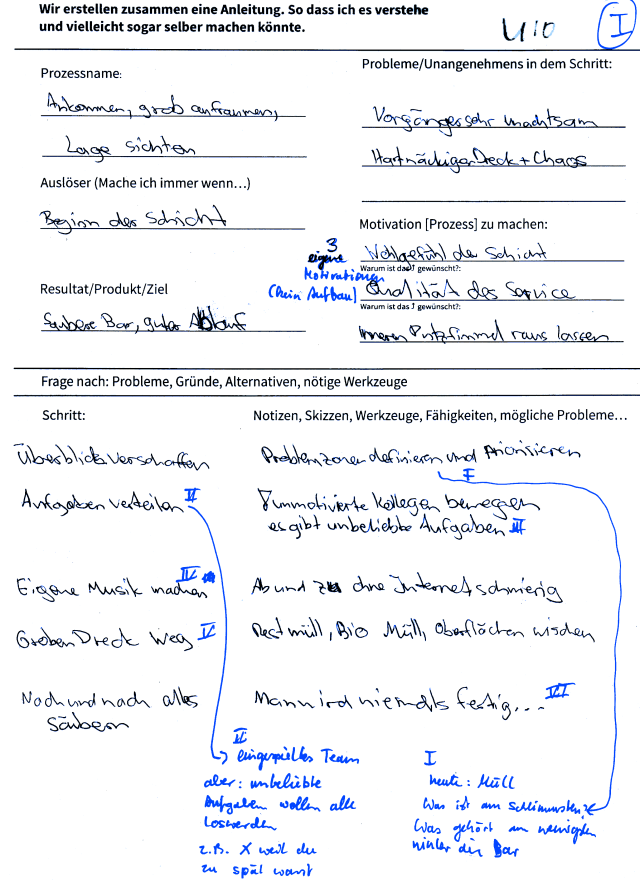 Wir erstellen zusammen eine Anleitung. So dass ich es verstehe
und vielleicht sogar selber machen könnte.
U10
I
Prozessname:
Ankommen, grob aufräumen,
Lage sichten
Auslöser (Mache ich immer wenn…)
Beginn der Schicht
Resultat/Produkt/Ziel
Saubere Bar, guter Ablauf
Probleme/Unangenehmens in dem Schritt:
Vorgänger sehr unachtsam
Hartnäckiger Dreck + Chaos
Motivation [Prozess] zu machen:
3
eigene
Motivationen
(kein Aufbau)
Wohlgefühl der Schicht
Warum ist das ↑ gewünscht?:
Qualität des Service
Warum ist das ↑ gewünscht?:
inneren Putzfimmel raus lassen
Frage nach: Probleme, Gründe, Alternativen, nötige Werkzeuge
Schritt:
Notizen, Skizzen, Werkzeuge, Fähigkeiten, mögliche Probleme…
Überblick verschaffen
Problemzonen definieren und Priorisieren
I
Aufgaben verteilen II
unmotivierte Kollegen bewegen
es gibt unbeliebte Aufgaben III
Eigene Musik machen IV
Ab und zu ohne Internet, schmierig
Groben Dreck weg V
Restmüll, Bio Müll, Oberflächen wischen
Nach und nach alles
säubern
Man wird niemals fertig... VI
II
eingespieltes Team
aber: unbeliebte
Aufgaben wollen alle
loswerden
z.B. X weil du
zu spät warst
I
heute: Müll
Was ist am schlimmsten?
Was gehört am wenigsten
hinter die Bar